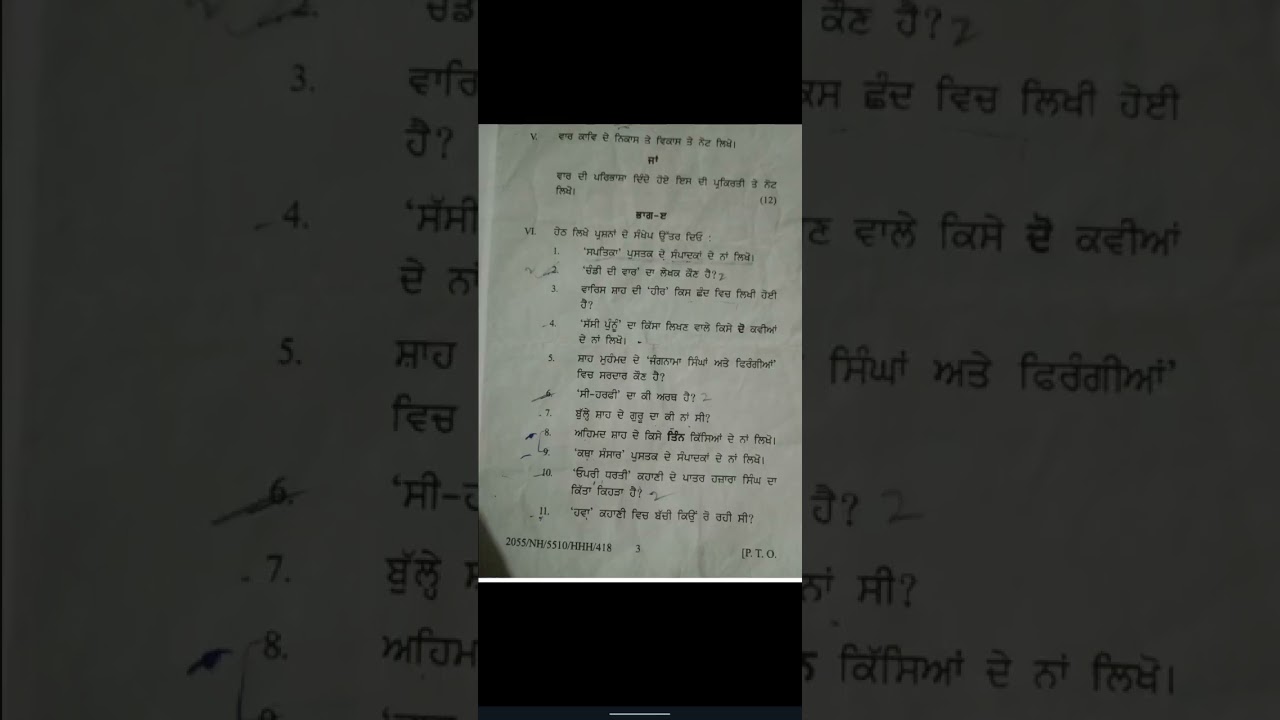 V. ਵਾਰ ਕਾਵਿ ਦੇ ਨਿਕਾਸ ਤੇ ਵਿਕਾਸ ਤੇ ਨੋਟ ਲਿਖੋ।
ਜਾਂ
ਵਾਰ ਦੀ ਪਰਿਭਾਸ਼ਾ ਦਿੰਦੇ ਹੋਏ ਇਸ ਦੀ ਪ੍ਰਕਿਰਤੀ ਤੇ ਨੋਟ
ਲਿਖੋ।
(12)
ਭਾਗ-ੲ
VI. ਹੇਠ ਲਿਖੇ ਪ੍ਰਸ਼ਨਾਂ ਦੇ ਸੰਖੇਪ ਉੱਤਰ ਦਿਓ :
1. 'ਸਪਤਿਕਾ' ਪੁਸਤਕ ਦੇ ਸੰਪਾਦਕਾਂ ਦੇ ਨਾਂ ਲਿਖੋ।
2. 'ਚੰਡੀ ਦੀ ਵਾਰ' ਦਾ ਲੇਖਕ ਕੌਣ ਹੈ? 2
3. ਵਾਰਿਸ ਸ਼ਾਹ ਦੀ 'ਹੀਰ' ਕਿਸ ਛੰਦ ਵਿਚ ਲਿਖੀ ਹੋਈ
ਹੈ?
4. 'ਸੱਸੀ ਪੁੰਨੂੰ' ਦਾ ਕਿੱਸਾ ਲਿਖਣ ਵਾਲੇ ਕਿਸੇ ਦੋ ਕਵੀਆਂ
ਦੇ ਨਾਂ ਲਿਖੋ।
5. ਸ਼ਾਹ ਮੁਹੰਮਦ ਦੇ 'ਜੰਗਨਾਮਾ ਸਿੰਘਾਂ ਅਤੇ ਫਿਰੰਗੀਆਂ'
ਵਿਚ ਸਰਦਾਰ ਕੌਣ ਹੈ?
6. 'ਸੀ-ਹਰਫੀ' ਦਾ ਕੀ ਅਰਥ ਹੈ? 2
7. ਬੁੱਲ੍ਹੇ ਸ਼ਾਹ ਦੇ ਗੁਰੂ ਦਾ ਕੀ ਨਾਂ ਸੀ?
8. ਅਹਿਮਦ ਸ਼ਾਹ ਦੇ ਕਿਸੇ ਤਿੰਨ ਕਿੱਸਿਆਂ ਦੇ ਨਾਂ ਲਿਖੋ।
9. 'ਕਥਾ ਸੰਸਾਰ' ਪੁਸਤਕ ਦੇ ਸੰਪਾਦਕਾਂ ਦੇ ਨਾਂ ਲਿਖੋ।
10. 'ਓਪਰੀ ਧਰਤੀ' ਕਹਾਣੀ ਦੇ ਪਾਤਰ ਹਜ਼ਾਰਾ ਸਿੰਘ ਦਾ
ਕਿੱਤਾ ਕਿਹੜਾ ਹੈ? 2
11. 'ਹਵਾ' ਕਹਾਣੀ ਵਿਚ ਬੱਚੀ ਕਿਉਂ ਰੋ ਰਹੀ ਸੀ?
2055/NH/5510/HHH/418 3 [P. T. O.